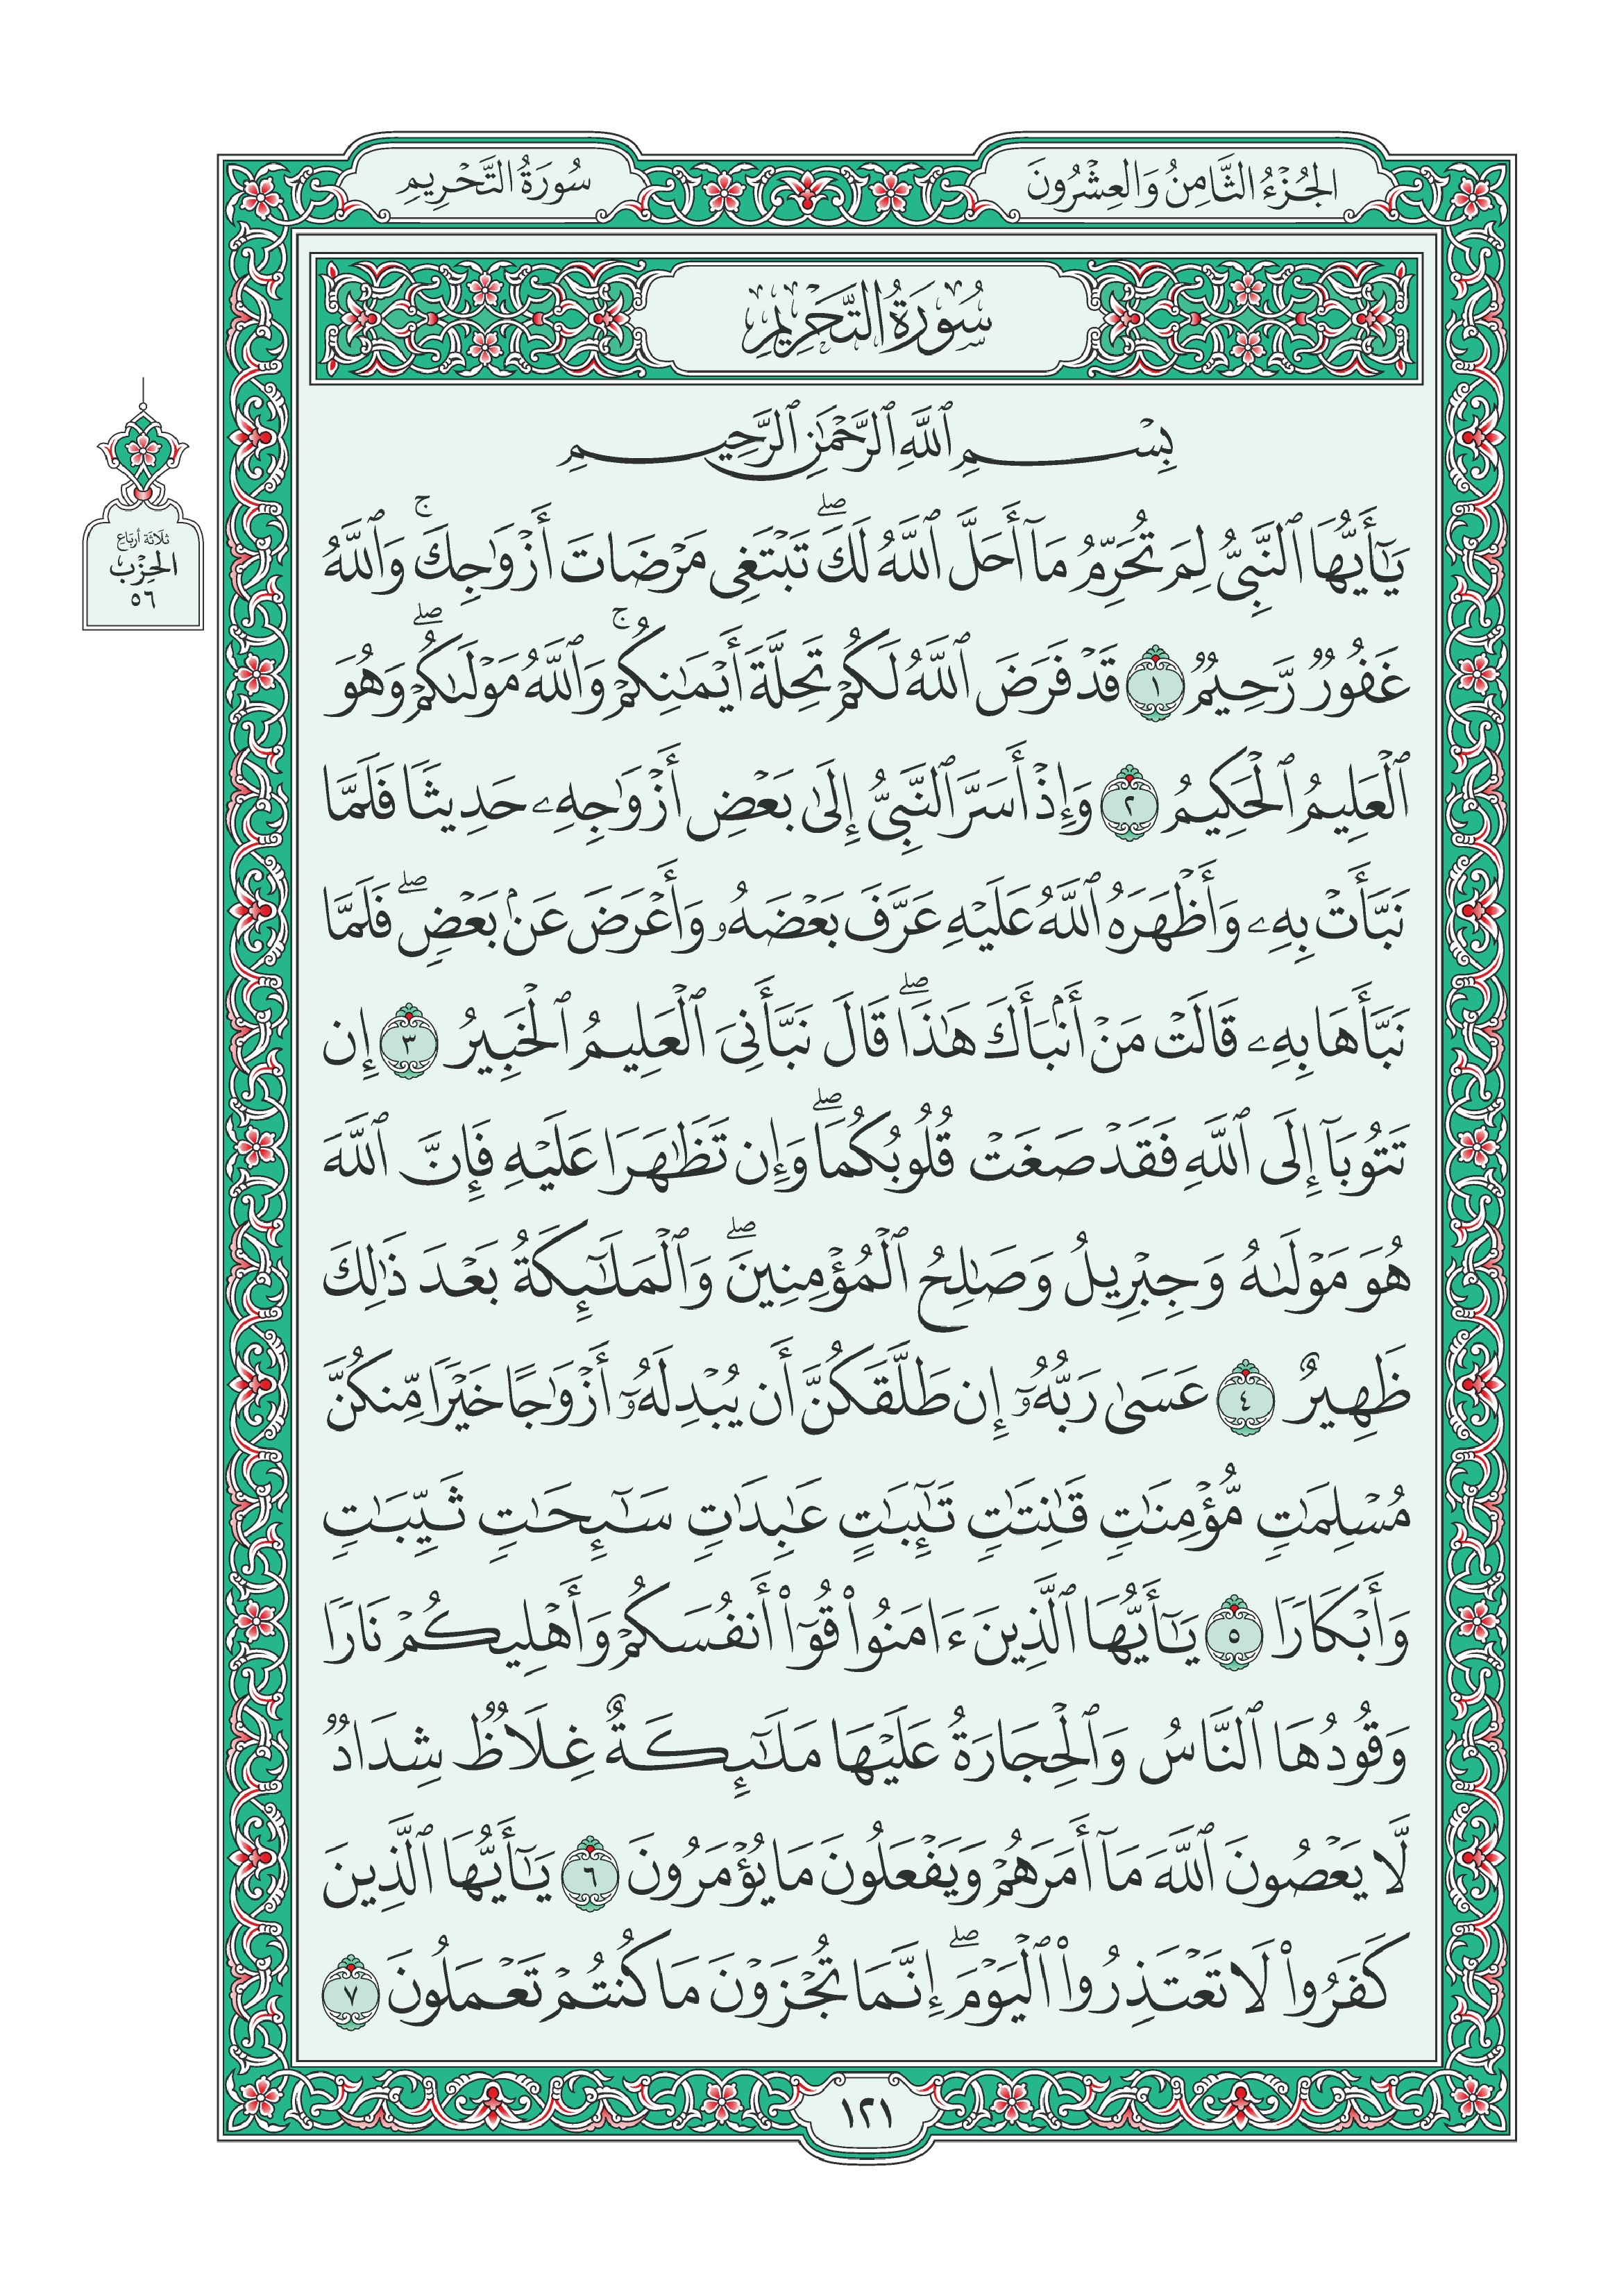 الجُزْءُ الثَّامِنُ وَالعِشْرُونَ
سُورَةُ التَّحْرِيمِ
سُورَةُ التَّحْرِيمِ
بِسْمِ ٱللَّهِ ٱلرَّحْمَٰنِ ٱلرَّحِيمِ
يَٰٓأَيُّهَا ٱلنَّبِيُّ لِمَ تُحَرِّمُ مَآ أَحَلَّ ٱللَّهُ لَكَۖ تَبْتَغِي مَرْضَاتَ أَزْوَٰجِكَۚ وَٱللَّهُ
غَفُورٞ رَّحِيمٞ ١ قَدْ فَرَضَ ٱللَّهُ لَكُمْ تَحِلَّةَ أَيْمَٰنِكُمْۚ وَٱللَّهُ مَوْلَىٰكُمْۖ وَهُوَ
ٱلْعَلِيمُ ٱلْحَكِيمُ ٢ وَإِذْ أَسَرَّ ٱلنَّبِيُّ إِلَىٰ بَعْضِ أَزْوَٰجِهِۦ حَدِيثٗا فَلَمَّا
نَبَّأَتْ بِهِۦ وَأَظْهَرَهُ ٱللَّهُ عَلَيْهِ عَرَّفَ بَعْضَهُۥ وَأَعْرَضَ عَنۢ بَعْضٖۖ فَلَمَّا
نَبَّأَهَا بِهِۦ قَالَتْ مَنْ أَنۢبَأَكَ هَٰذَاۖ قَالَ نَبَّأَنِيَ ٱلْعَلِيمُ ٱلْخَبِيرُ ٣ إِن
تَتُوبَآ إِلَى ٱللَّهِ فَقَدْ صَغَتْ قُلُوبُكُمَاۖ وَإِن تَظَٰهَرَا عَلَيْهِ فَإِنَّ ٱللَّهَ
هُوَ مَوْلَىٰهُ وَجِبْرِيلُ وَصَٰلِحُ ٱلْمُؤْمِنِينَۖ وَٱلْمَلَٰٓئِكَةُ بَعْدَ ذَٰلِكَ
ظَهِيرٌ ٤ عَسَىٰ رَبُّهُۥٓ إِن طَلَّقَكُنَّ أَن يُبْدِلَهُۥٓ أَزْوَٰجًا خَيْرٗا مِّنكُنَّ
مُسْلِمَٰتٖ مُّؤْمِنَٰتٖ قَٰنِتَٰتٖ تَٰٓئِبَٰتٍ عَٰبِدَٰتٖ سَٰٓئِحَٰتٖ ثَيِّبَٰتٖ
وَأَبْكَارٗا ٥ يَٰٓأَيُّهَا ٱلَّذِينَ ءَامَنُوا۟ قُوٓا۟ أَنفُسَكُمْ وَأَهْلِيكُمْ نَارٗا
وَقُودُهَا ٱلنَّاسُ وَٱلْحِجَارَةُ عَلَيْهَا مَلَٰٓئِكَةٌ غِلَاظٞ شِدَادٞ
لَّا يَعْصُونَ ٱللَّهَ مَآ أَمَرَهُمْ وَيَفْعَلُونَ مَا يُؤْمَرُونَ ٦ يَٰٓأَيُّهَا ٱلَّذِينَ
كَفَرُوا۟ لَا تَعْتَذِرُوا۟ ٱلْيَوْمَۖ إِنَّمَا تُجْزَوْنَ مَا كُنتُمْ تَعْمَلُونَ ٧
ثلاثة أرباع
الحِزْب
٥٦
١٢١